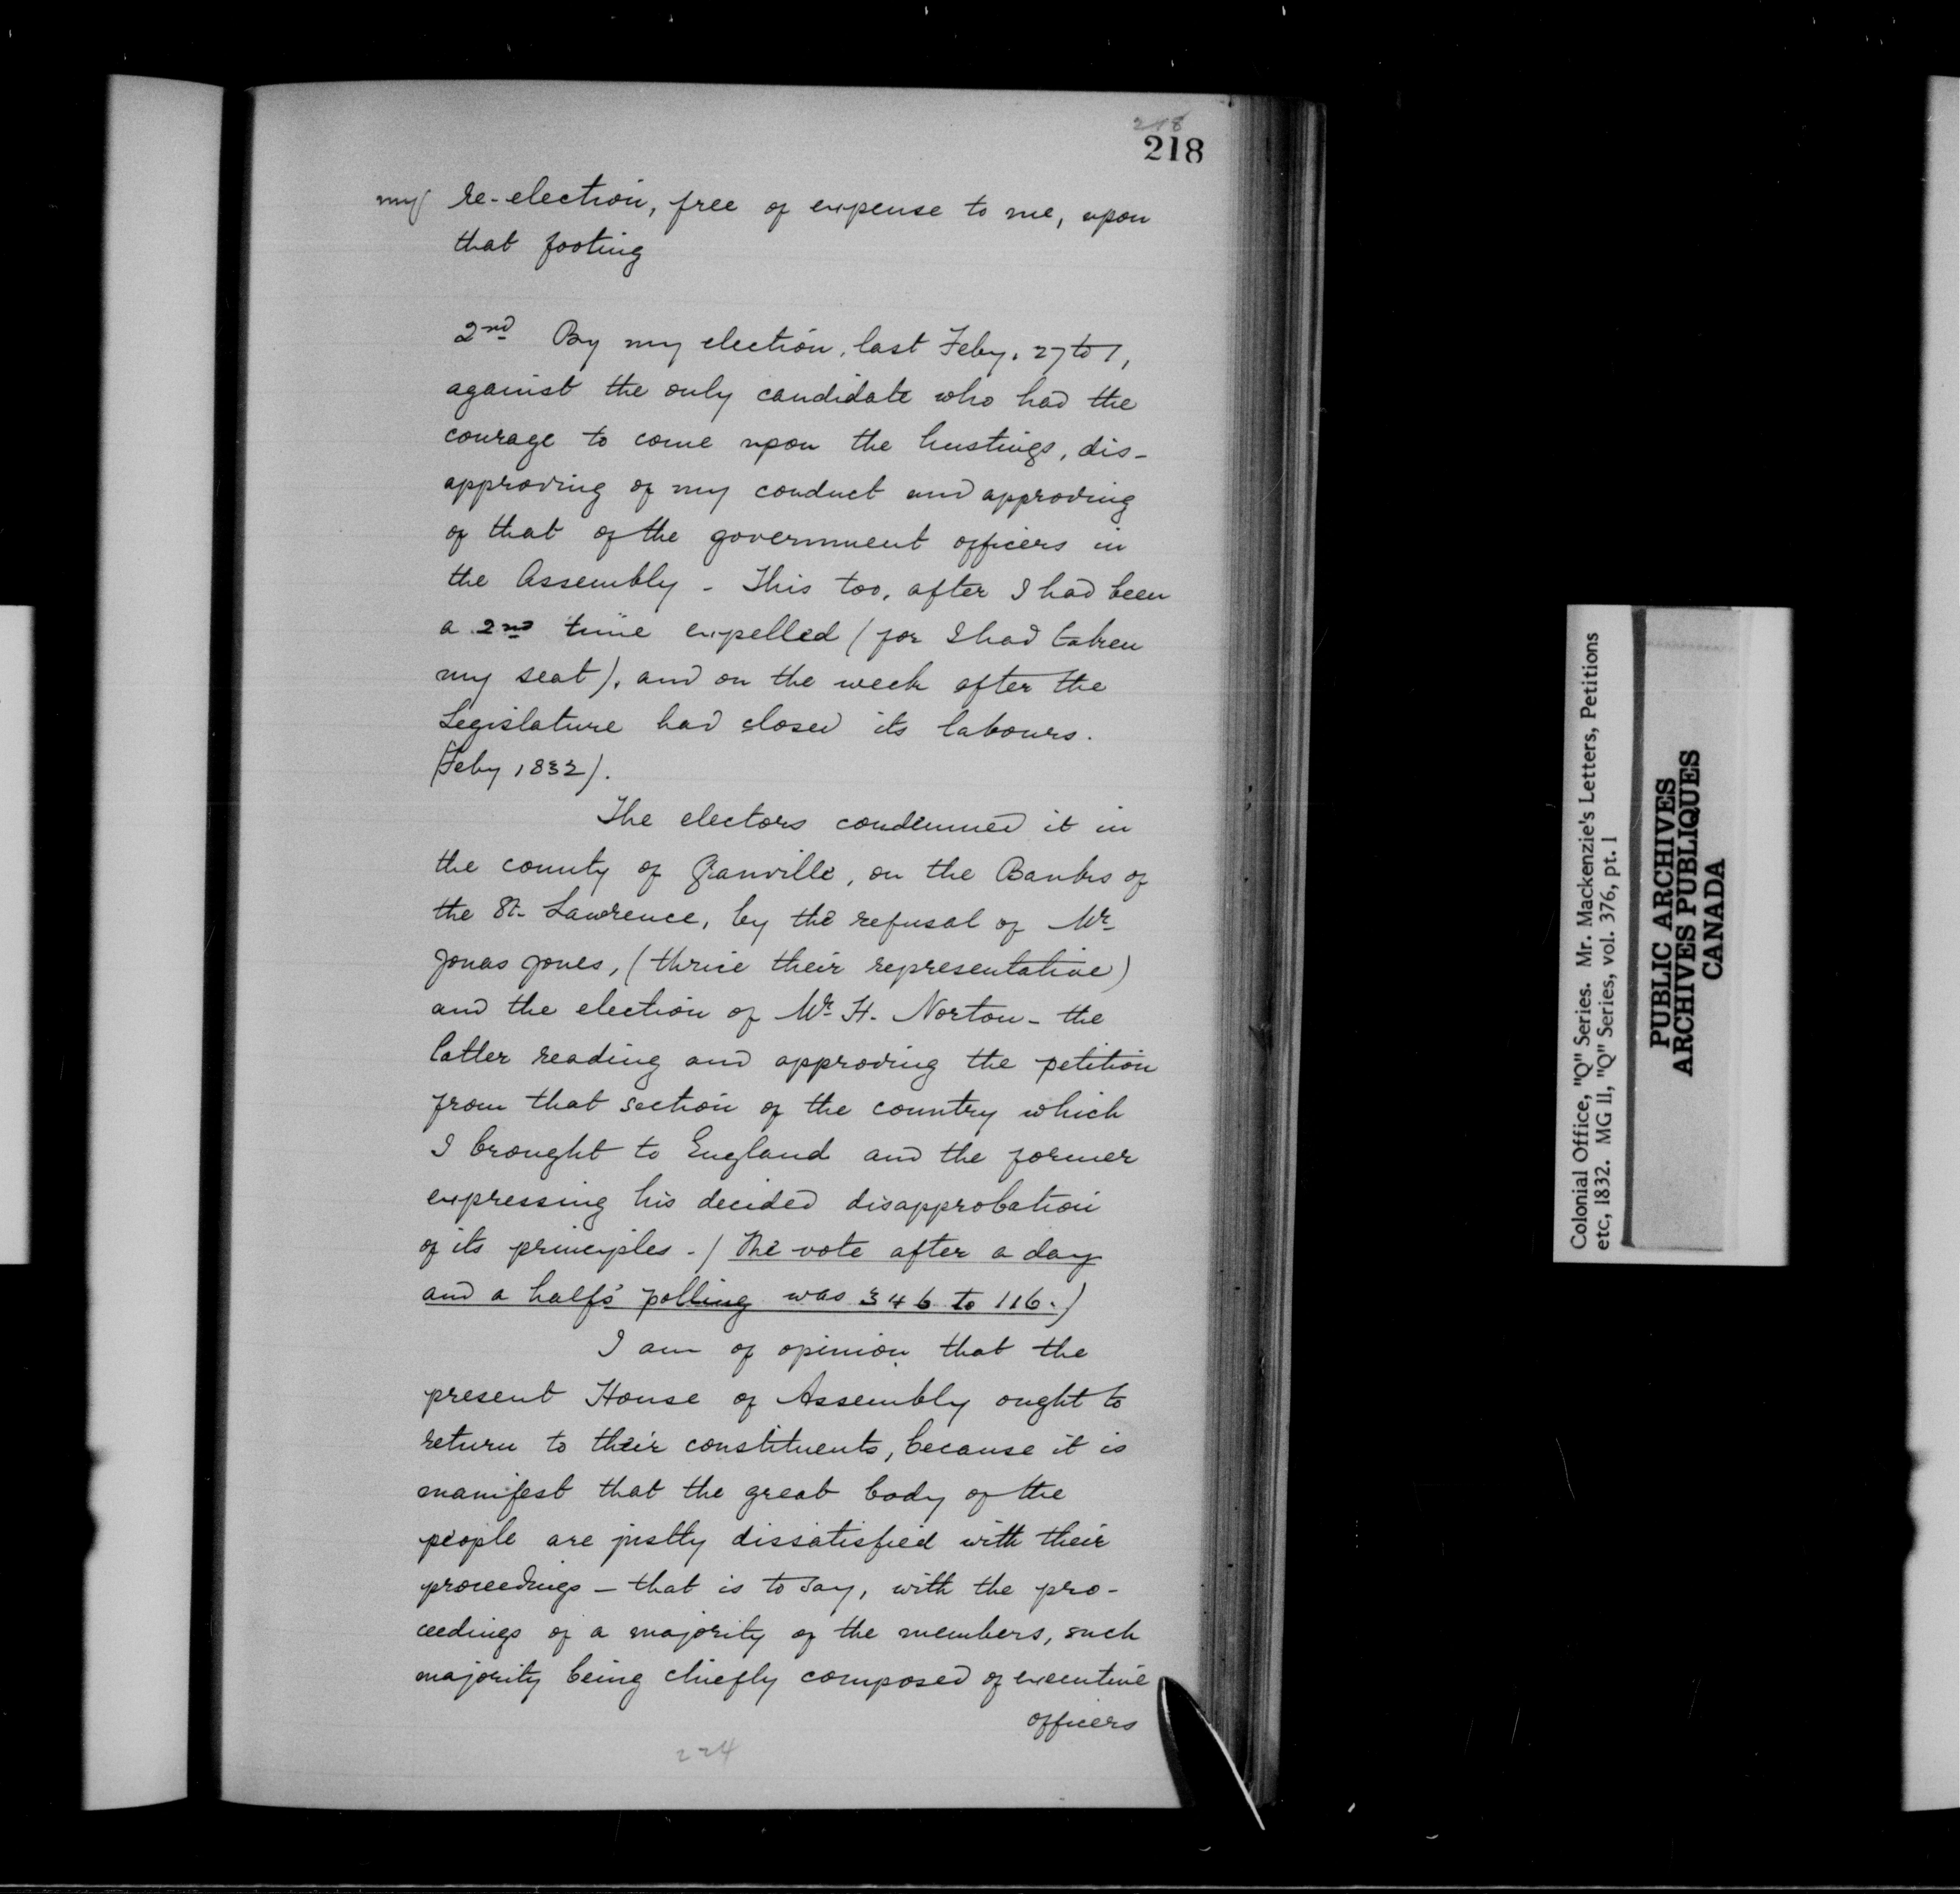 218
218
my re-election, free of expense to me, upon
that footing
2nd By my election, last Feby. 27 to 1,
against the only candidate who had the
courage to come upon the hustings, dis-
approving of my conduct and approving
of that of the government officers in
the Assembly - This too, after I had been
a 2nd time expelled (for I had taken
my seat), and on the week after the
Legislature had closed its labours.
(Feby 1832).
The electors condemned it in
the county of Granville, on the Banks of
the St. Lawrence, by the refusal of Mr
Jonas Jones, (thrice their representative)
and the election of Mr H. Norton - the
latter reading and approving the petition
from that section of the country which
I brought to England and the former
expressing his decided disapprobation
of its principles - (The vote after a day
and a half's polling was 346 to 116.)
I am of opinion that the
present House of Assembly ought to
return to their constituents, because it is
manifest that the great body of the
people are justly dissatisfied with their
proceedings - that is to say, with the pro-
ceedings of a majority of the members, such
majority being chiefly composed of executive
officers
224
Colonial Office, "Q" Series. Mr. Mackenzie's Letters, Petitions
etc, 1832. MG 11, "Q" Series, vol. 376, pt. 1
PUBLIC ARCHIVES
ARCHIVES PUBLIQUES
CANADA